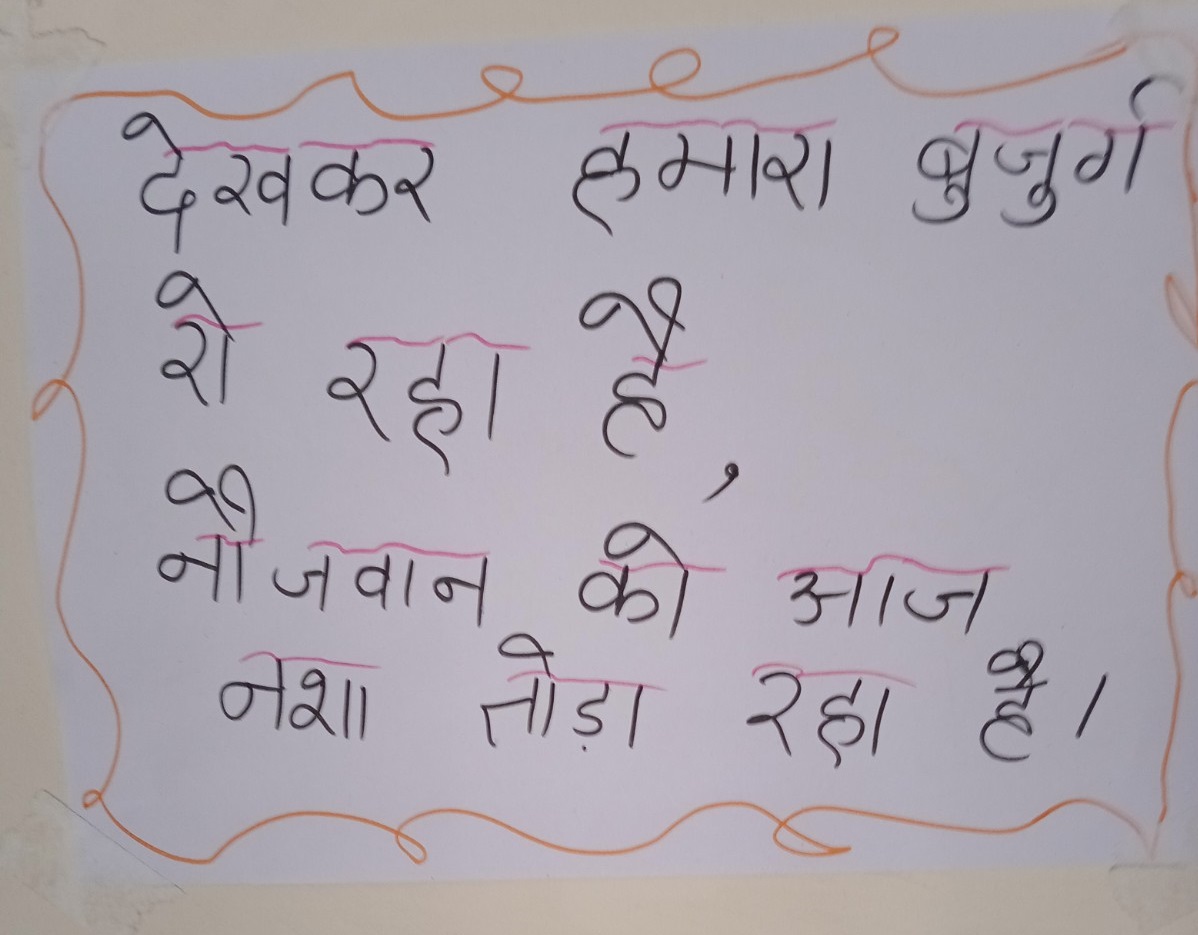 देखकर हमारा बुजुर्ग
रो रहा है,
नौजवान को आज
नशा तोड़ा रहा है।